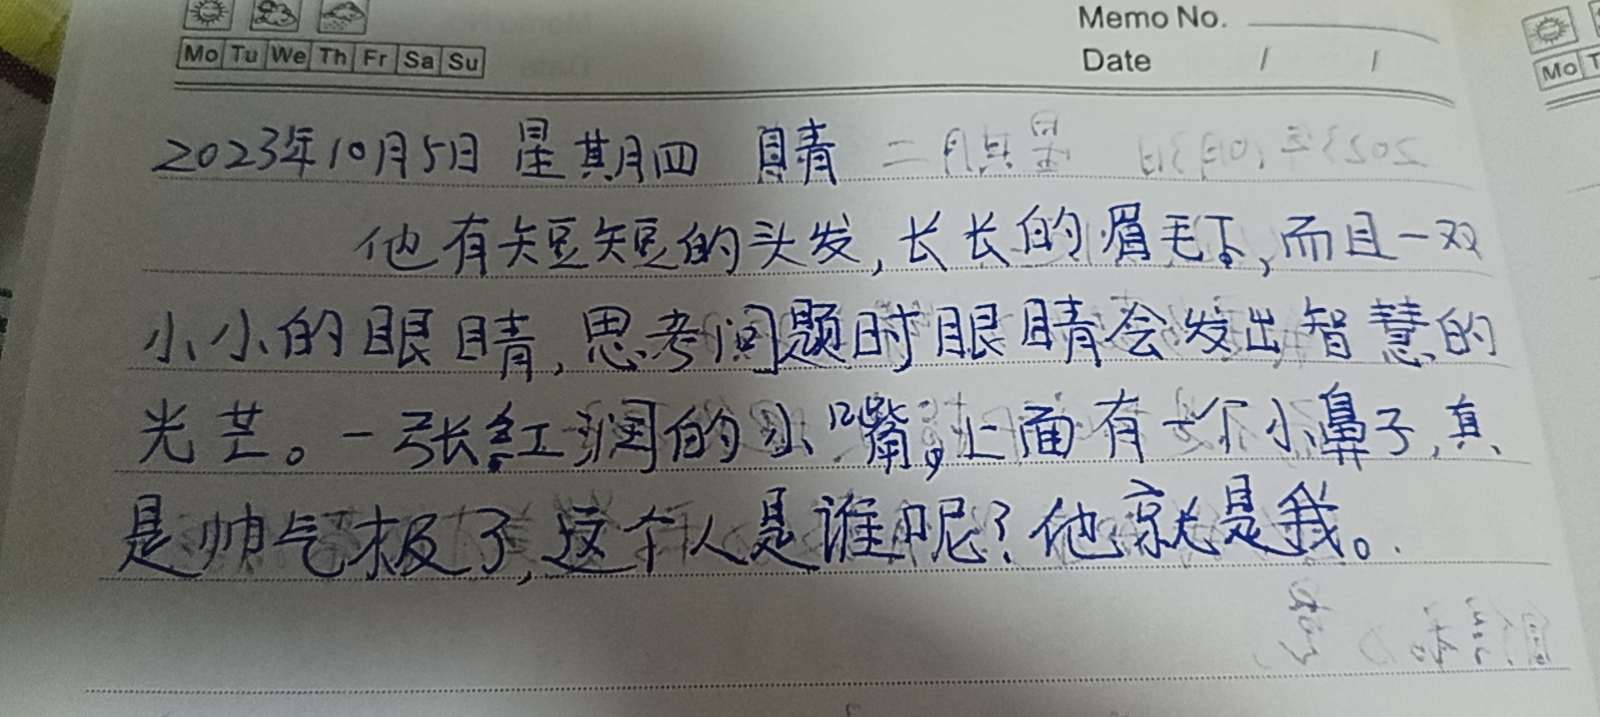 Memo No.
Mo Tu We Th Fr Sa Su
Date / /
Mo T
2023年10月5日 星期四 睛
他有短短的头发,长长的眉毛下,而且一双
小小的眼睛,思考问题时眼睛会发出智慧的
光芒。一张红润的小嘴,上面有一个小鼻子,真
是帅气极了,这个人是谁呢?他就是我。